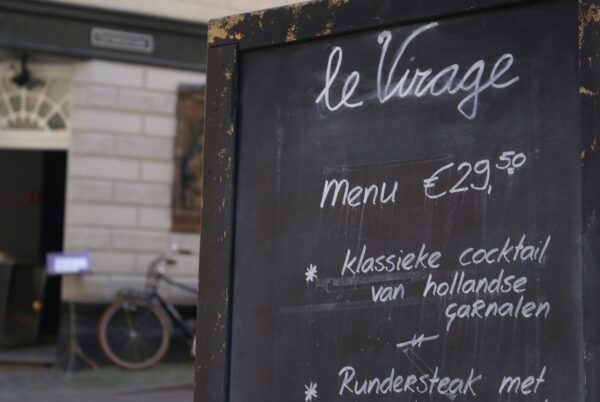 le Virage
Menu €29,50
* klassieke cocktail
van hollandse
garnalen
* Rundersteak met